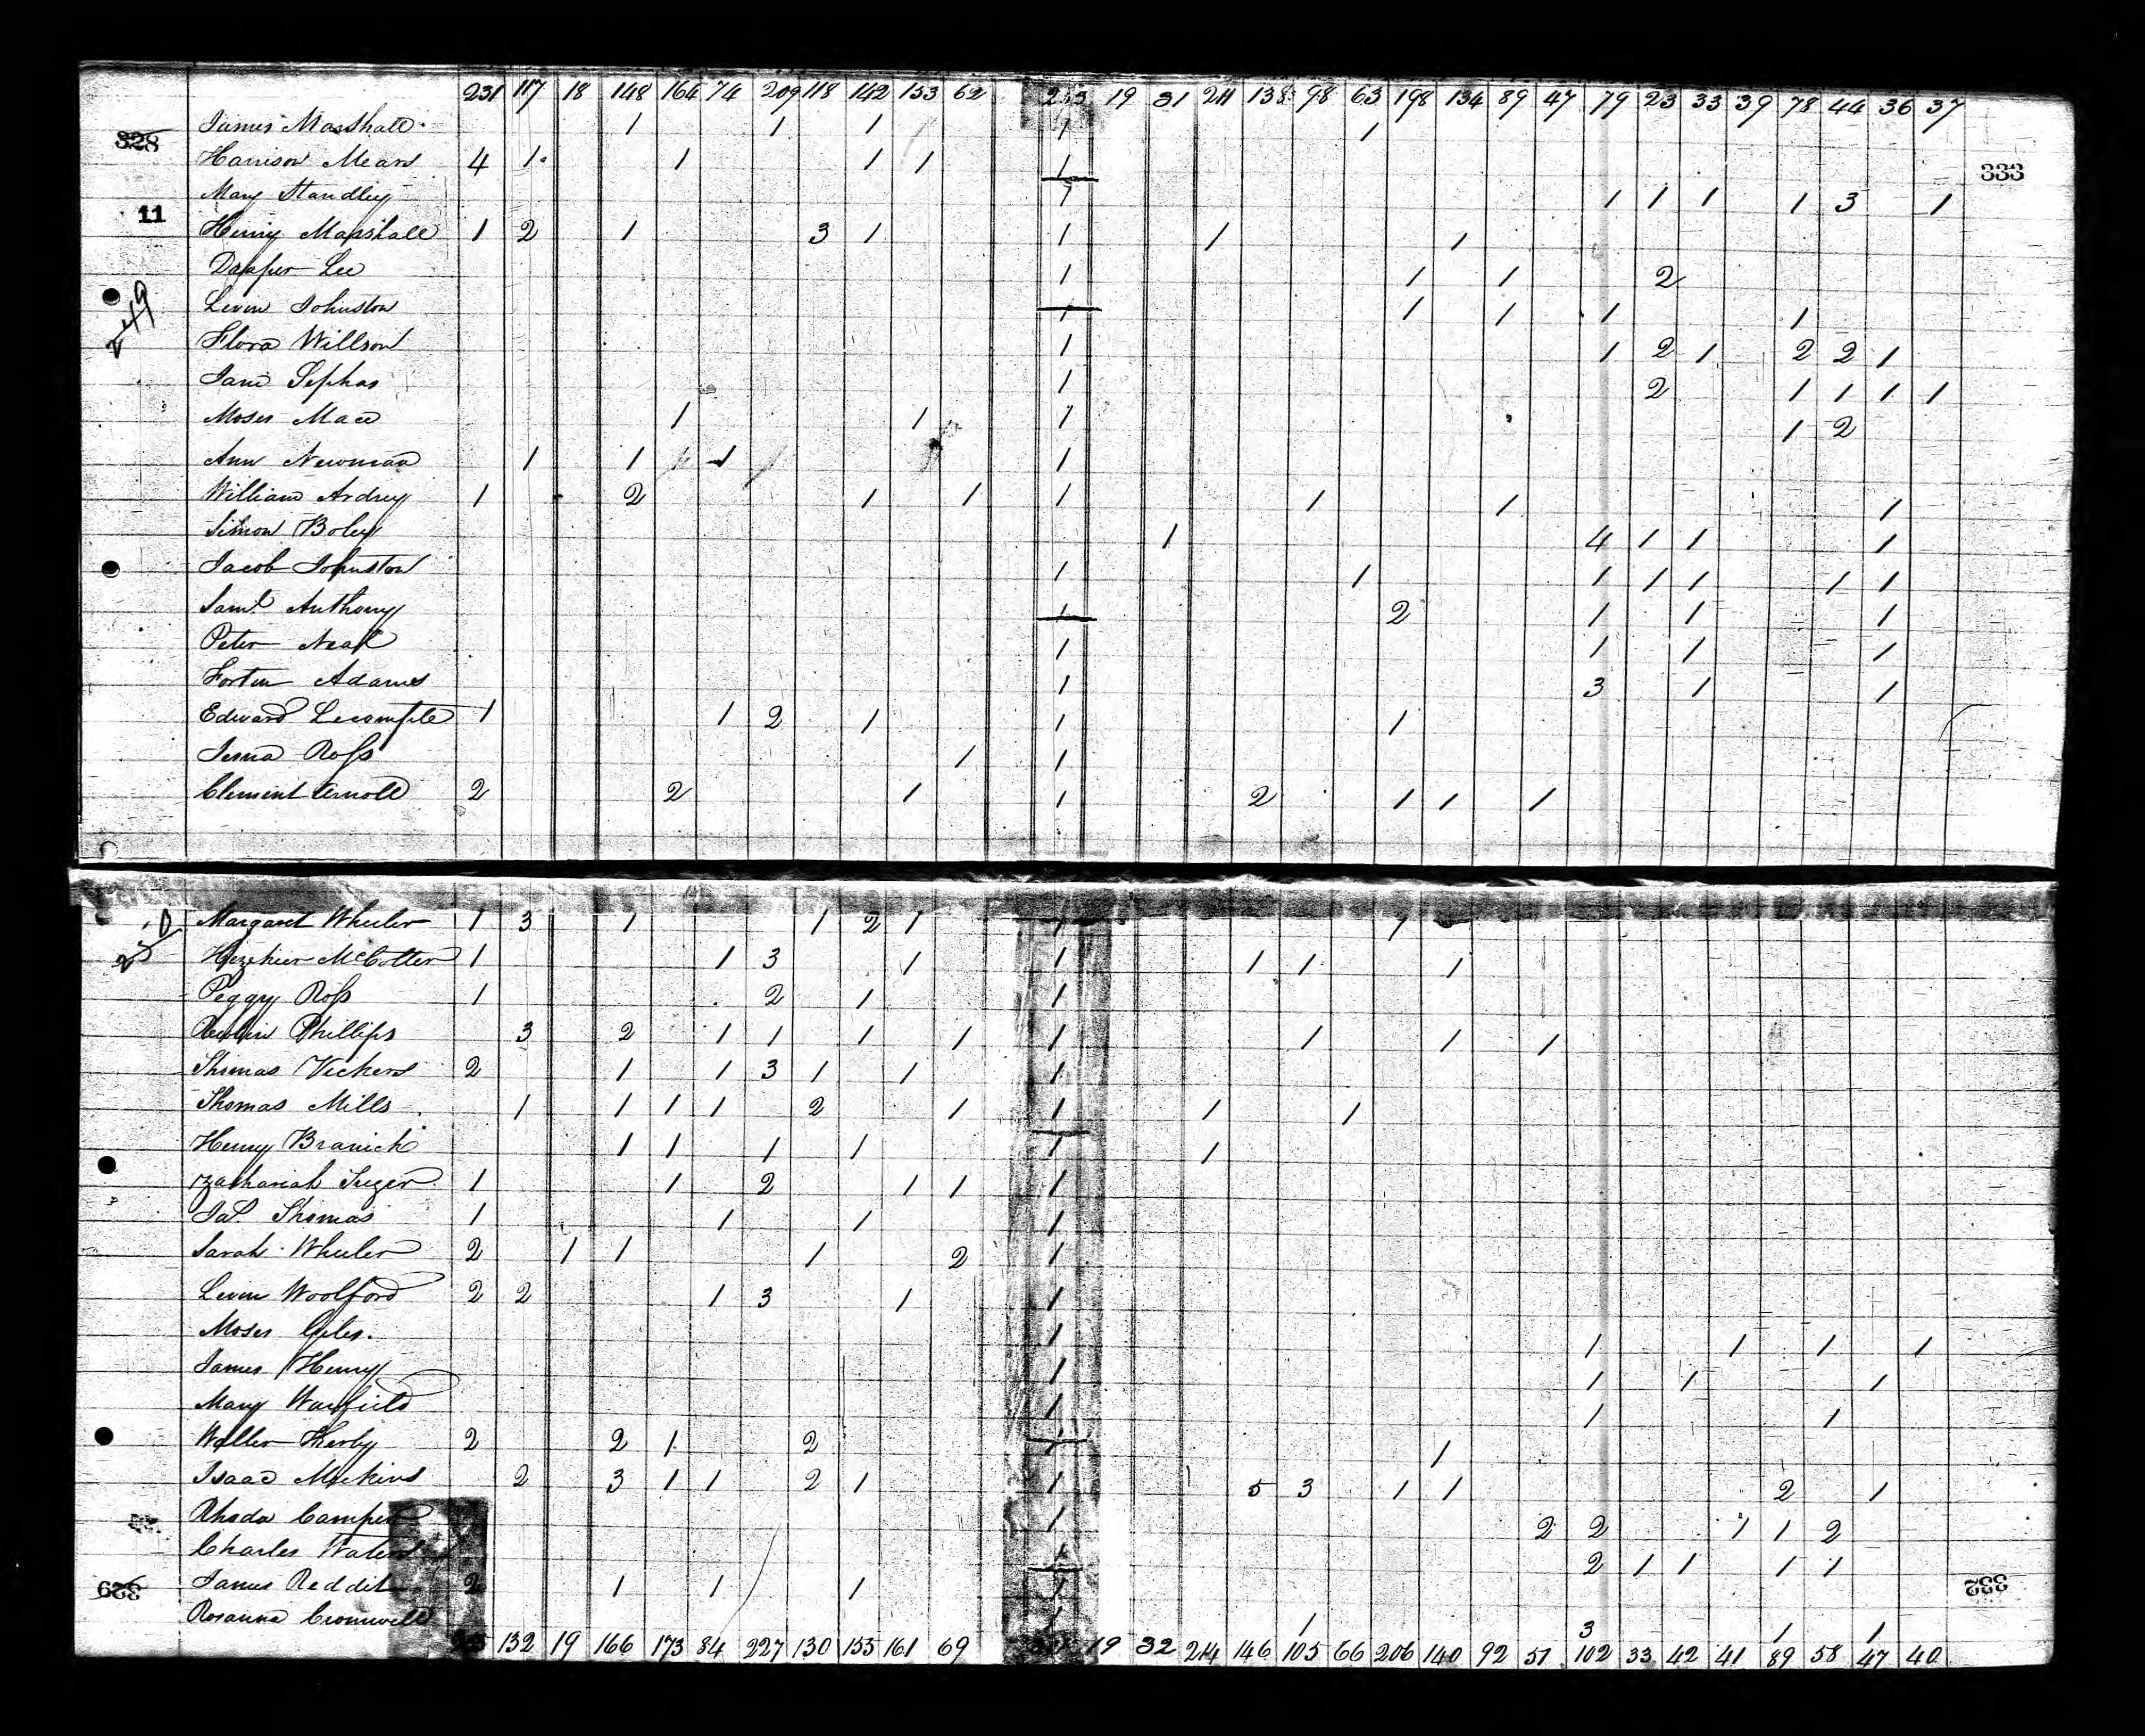 231 117 18 148 164 74 209 118 142 153 62 19 31 211 138 98 63 198 134 89 47 79 23 33 39 78 44 36 37
328
James Marshall 1 1 1 1 1
Harrison Mears 4 1 1 1 1 1
333
Mary Standley 1 1 1 1 1 3 1
11
Henry Marshall 1 2 1 3 1 1 1 1
Draper Lee 1 1 1 2
249
Levin Johnston 1 1 1 1 1
Flora Willson 1 1 2 1 2 2 1
Jane Sephas 1 2 1 1 1 1
Moses Mace 1 1 1 1 2
Ann Newman 1 1 1 1
William Ardrey 1 2 1 1 1 1 1 1
Simon Boley 1 4 1 1 1
Jacob Johnston 1 1 1 1 1 1 1
Saml. Anthony 1 2 1 1 1
Peter Neal 1 1 1 1
Adams 1 3 1 1
Edward Lecompte 1 1 2 1 1 1
Ross 1 1
Clement Arnold 2 2 1 1 2 1 1 1
Margaret Wheeler 1 3 1 1 2 1 1 1
250
McCotter 1 1 3 1 1 1 1 1
Peggy Ross 1 2 1 1
Phillips 3 2 1 1 1 1 1 1 1 1
Thomas Vickers 2 1 1 3 1 1 1
Thomas Mills 1 1 1 1 2 1 1 1 1
Henry Branick 1 1 1 1 1 1
Zachariah 1 1 2 1 1 1
Jas. Thomas 1 1 1 1
Sarah Wheeler 2 1 1 1 2 1
Levin Woolford 2 2 1 3 1 1
Moses Giles. 1 1 1 1 1
James Henry 1 1 1 1
Mary Warfield 1 1 1
Kerby 2 2 1 2 1 1
Isaac Mekins 2 3 1 1 2 1 1 5 3 1 1 2 1
Rhoda Camper 1 2 2 1 1 2
Charles Waters 1 2 1 1 1 1
329
James Reddit 2 1 1 1 1
332
Rosanna Cromwell 1 1 3 1 1
132 19 166 173 84 227 130 153 161 69 19 32 214 146 105 66 206 140 92 51 102 33 42 41 89 58 47 40